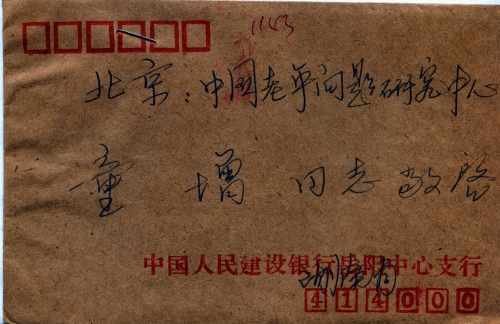 1153
北京：中国老年问题研究中心
童增 同志 敬启
中国人民建设银行岳阳中心支行
414000